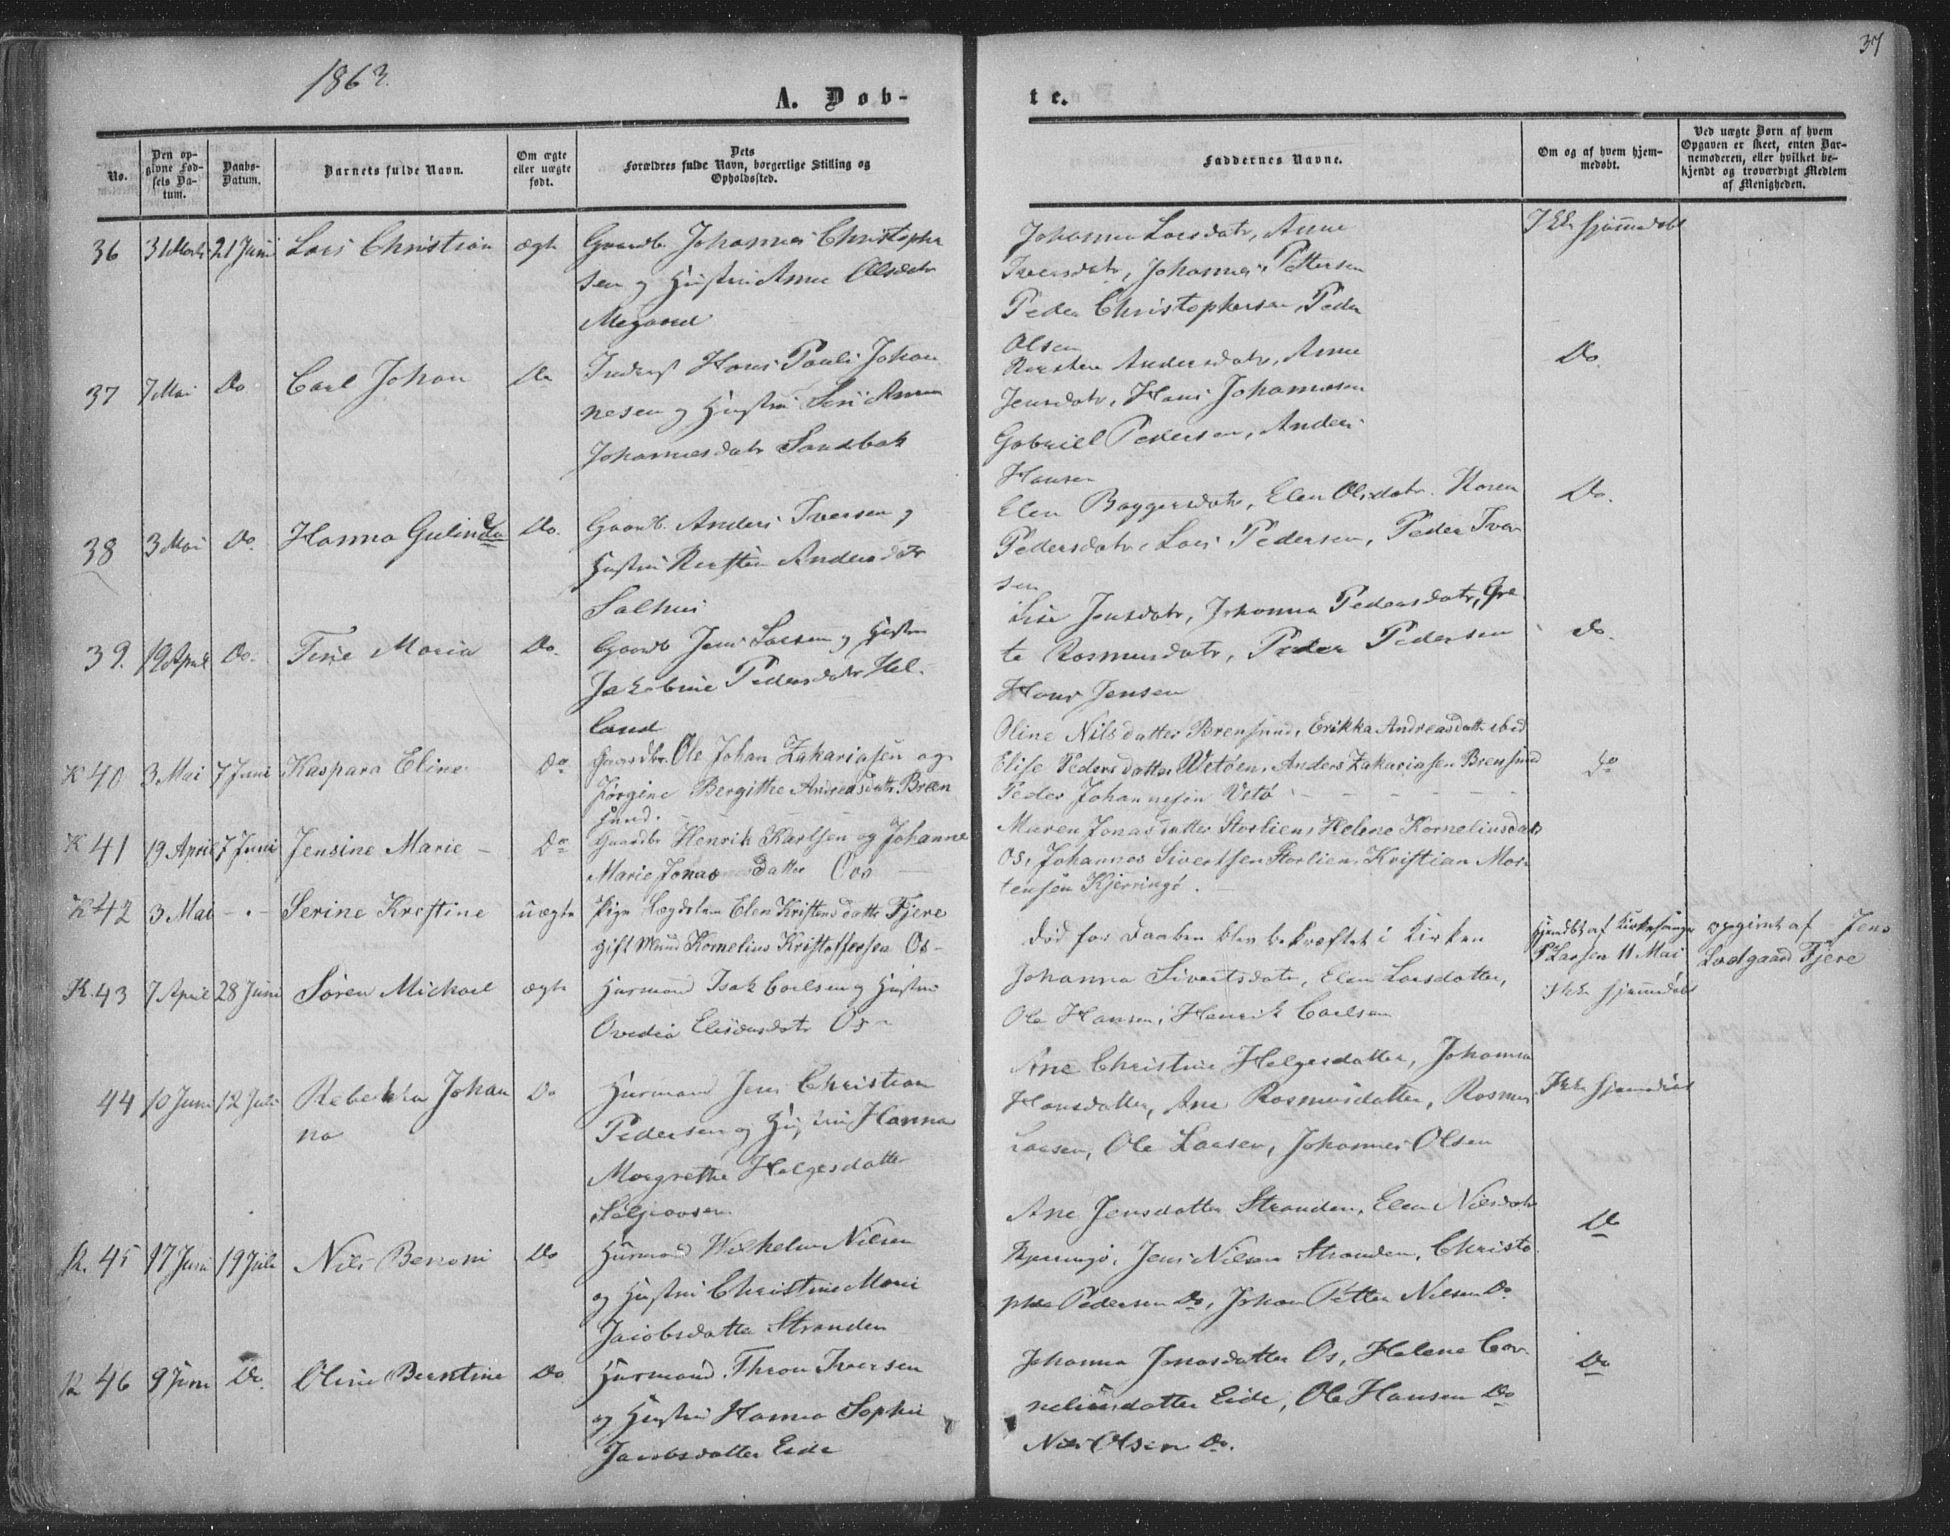 1863.
37
A. Døb-
te.
No.
Den op-
givne Fød-
sels Da-
tum.
Daabs-
Datum.
Barnets fulde Navn.
Om ægte
eller uægte
født.
Dets
Forældres fulde Navn, borgerlige Stilling og
Opholdssted.
Faddernes Navne.
Om og af hvem hjem-
medøbt.
Ved uægte Børn af hvem
Opgaven er skeet, enten Bar-
nemoderen, eller hvilket be-
kjendt og troværdigt Medlem
af Menigheden.
36 31 Marts 21 Juni Lars Christian ægte Gaardb. Johannes Christopher
sen og Hustru Anne Olsdatr
Megaard
Johanna Larsdatr, Anne
Iversdatr, Johannes Pettersen
Peder Christophersen, Peder
Olsen
Ikke hjemmedøbt
37 7 Mai Do Carl Johan Do Inderst Hans Pauli Johan
nesen og Hustru Seri Anna
Johannesdatr Sandbak
Kersten Andersdatr, Anne
Jensdatr, Hans Johannesen
Gabriel Pedersen, Anders
Hansen
Do.
38 3 Mai Do. Hanna Gulinda Do. Gaardb. Anders Iversen og
Hustru Kersten Andersdatr
Salhus
Elen Baggersdatr, Elen Olsdatr. Karen
Pedersdatr, Lars Pedersen, Peder Iver
sen
Do.
39. 19 April Do. Tine Maria Do. Gaardb Jens Larsen og Hustru
Jakobine Pedersdatr Hel-
land
Lise Jensdatr, Johanna Pedersdatr, Gre
te Rasmusdatr, Peder Pedersen
Hans Jensen
Do.
K 40 3 Mai 7 Juni Kaspara Eline Do Gaardbr. Ole Johan Zakariasen og
Jørgine Bergithe Andreasdatr Bren
sund.
Oline Nilsdatter Brensund, Erikka Andreasdatt ibid
Elise Pedersdatter Vetøen, Anders Zakariasen Brensund
Peder Johannesen Vetø
Do
K 41 19 April 7 Juni Jensine Marie Do Gaardbr Henrik Karlsen og Johanne
Marie Jonasdatter Oos
Maren Jonasdatter Storlien, Helene Korneliusdatr
Os, Johannes Sivertsen Storlien, Kristian Mor
tensen Kjerringø.
K 42 3 Mai - . - Serine Krestine uægte Pige Lægdslem Elen Kristensdatter Fjere
Gift Mand Kornelius Kristoffersen Os
død før Daaben blev bekræftet i Kirken
hjemdbt af Kirkesanger
P Larsen 11 Mai
opgivet af Jens
Ladgaard Fjere
K. 43 7 April 28 Juni Søren Michael ægte Husmand Isak Carlsen og Hustru
Ovedia Eliasdatr Os
Johanna Sivertsdatr, Elen Larsdatter,
Ole Hansen, Henrik Carlsen
Ikke hjemmedøbt
44 10 Juni 12 Juli Rebekka Johan
na
Do Husmand Jens Christian
Pedersen og Hustru Hanna
Margrethe Helgesdatter
Ane Christine Helgesdatter, Johanna
Hansdatter, Ane Rasmusdatter, Rasmus
Larsen, Ole Larsen, Johannes Olsen
Ikke hjemmedøbt
K. 45 17 Juni 19 Juli Nils Benoni Do Husmand Wilhelm Nilsen
og Hustru Christine Marie
Jacobsdatter Stranden
Ane Jensdatter Stranden, Elen Nilsdatr
Kjerringø, Jens Nilsen Stranden, Christo-
pher Pedersen Do, Johan Petter Nilsen Do
Do
K 46 9 Juni Do. Oline Berntine Do. Husmand. Thron Iversen
og Hustru Hanna Sophie
Jacobsdatter Eide
Johanna Jonasdatter Os, Helene Cor
neliusdatter Eide, Ole Hansen Do
Nils Olsen Do.
Do